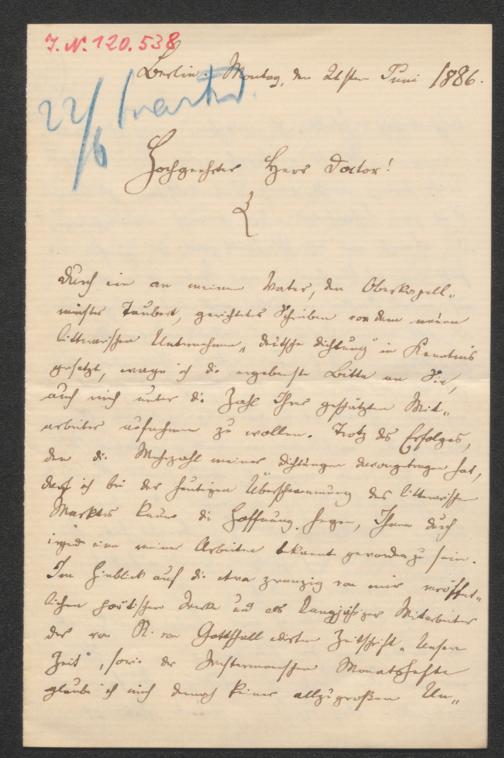 J. N. 120.538
Berlin, Montag, den 21sten Juni 1886.
22/6
Hochgeehrter Herr Doctor!
Durch ein an meinen Vater, den Oberkapell-
meister Taubert, gerichtetes Schreiben von dem neuen
litterarischen Unternehmen „Deutsche Dichtung" in Kenntnis
gesetzt, wage ich die ergebenste Bitte an Sie,
auch mich unter die Zahl Ihrer geschätzten Mit-
arbeiter aufnehmen zu wollen. Trotz des Erfolges,
den die Mehrzahl meiner Dichtungen davongetragen hat,
darf ich bei der heutigen Überschwemmung des litterarischen
Marktes kaum die Hoffnung hegen, Ihnen durch
irgend eine meiner Arbeiten bekannt geworden zu sein.
Im Hinblick auf die etwa zwanzig von mir veröffent-
lichten poetischen Werke und als langjähriger Mitarbeiter
der von R. von Gottschall edirten Zeitschrift „Unsere
Zeit", sowie der Westermannschen Monatshefte
glaube ich mich demnach keiner allzugroßen Un-